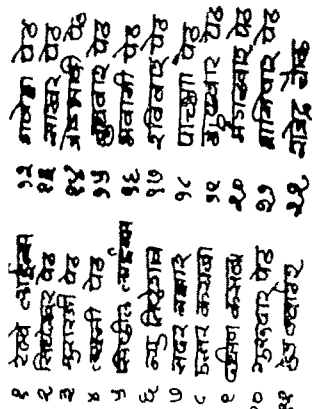 १ रेल्वे लाईन्स
२ सिध्देश्वर पेठ
३ मुरारजी पेठ
४ लक्ष्मी पेठ
५ सिव्हील लाईन्स
६ न्यु तिऱ्हेगाव
७ सदर बझार
८ उत्तर कसबा
९ दक्षिण कसबा
१० गुरुवार पेठ
११
१२ गणेश पेठ
१३ साखर पेठ
१४ जोडभावी पेठ
१५ बुधवार पेठ
१६ भवानी पेठ
१७ रविवार पेठ
१८ पाच्छा पेठ
१९ शुक्रवार पेठ
२० मंगळवार पेठ
२१ शनिवार पेठ
२२